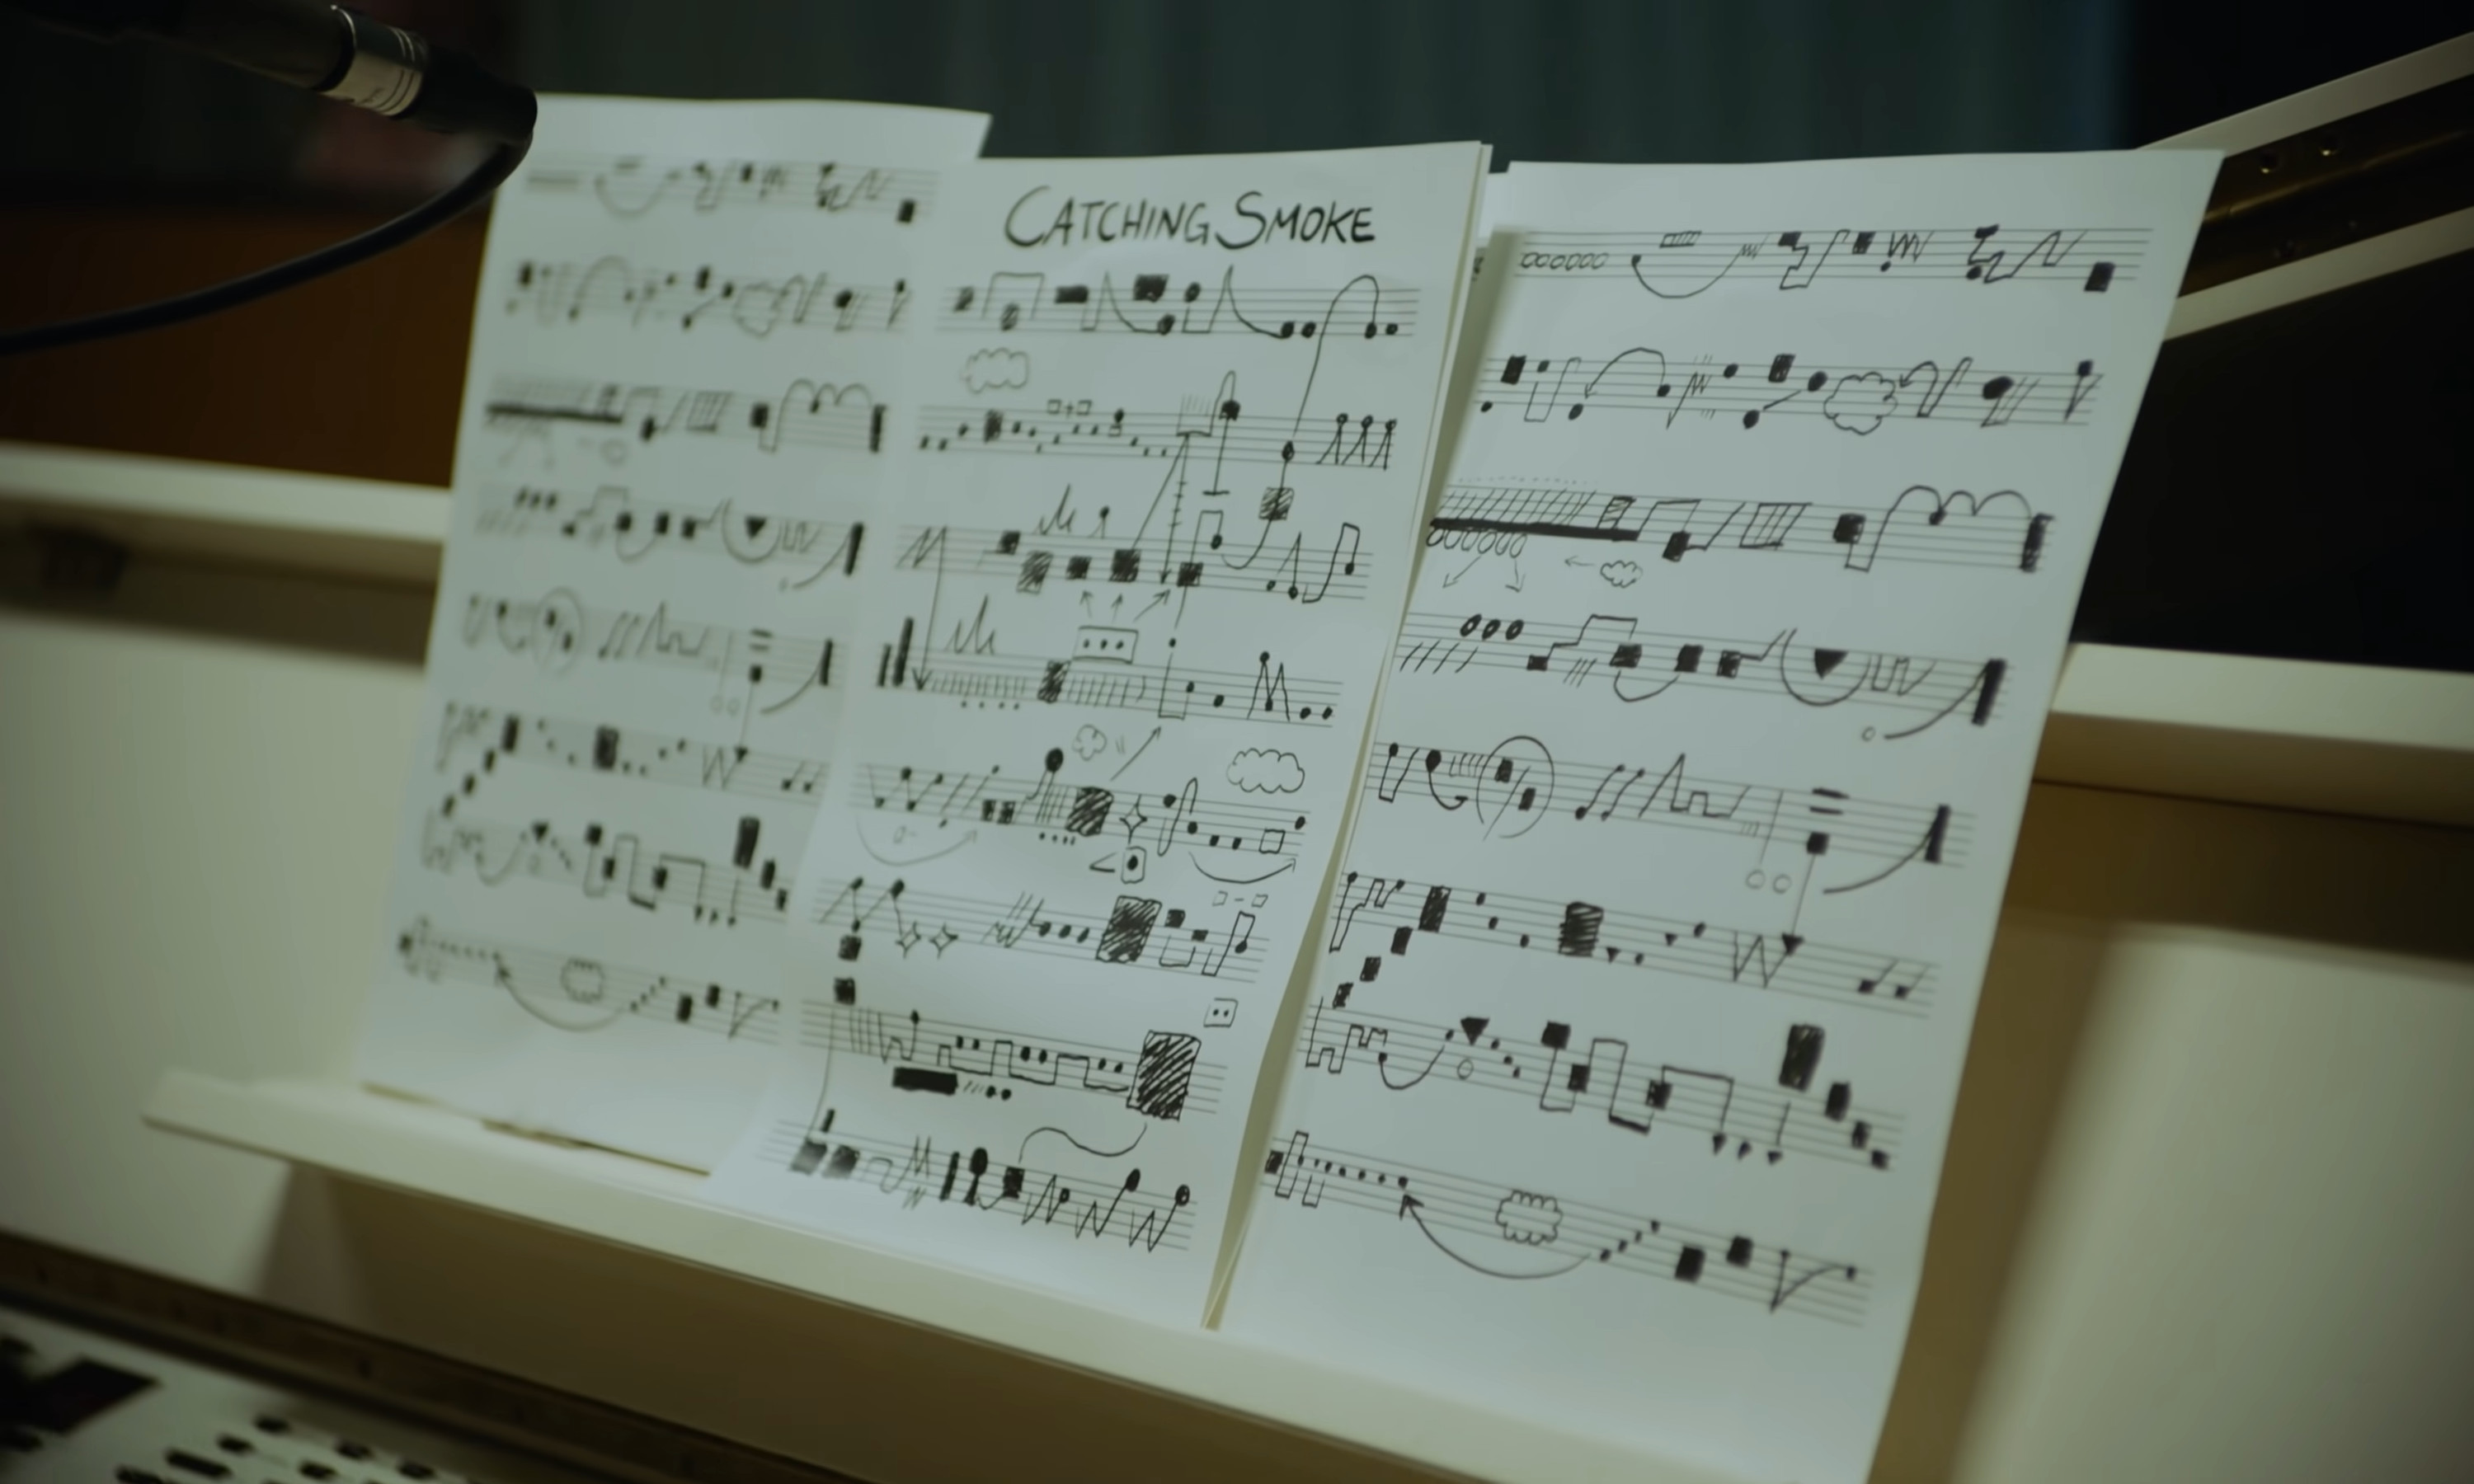 CATCHING SMOKE